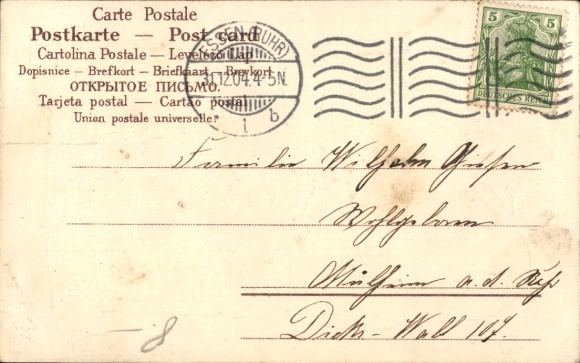 Carte Postale
Postkarte — Post card
Cartolina Postale — Levelező Lap
Dopisnice — Brefkort — Briefkaart — Brevkort
ОТКРЫТОЕ ПИСЬМО.
Tarjeta postal — Cartão postal
Union postale universelle.
ESSEN (RUHR)
31.12.04. 4-5N.
1 b
5 5
DEUTSCHES REICH
Familie Wilhelm
Wohlgeboren
Mülheim a. d. Ruhr
Dicks-Wall 107.
-8